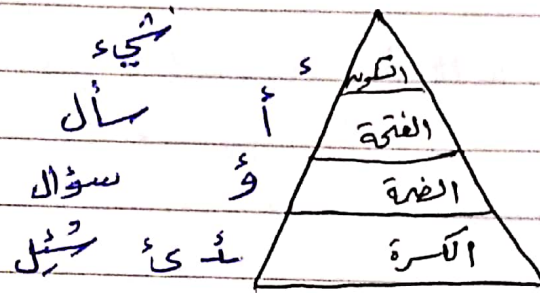 السكون ء شيء
الفتحة أ سأل
الضمة ؤ سؤال
الكسرة ـئـ ئ سُئِل